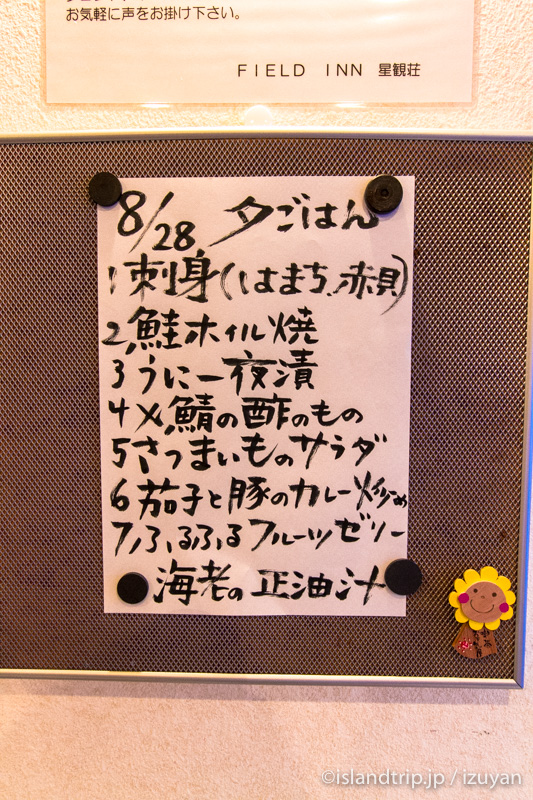 お気軽に声をお掛け下さい。
FIELD INN 星観荘
8/28 夕ごはん
1 刺身(はまち、赤貝)
2, 鮭ホイル焼
3 うに一夜漬
4 〆鯖の酢のもの
5 さつまいものサラダ
6 茄子と豚のカレー炒め
7, ふるふるフルーツゼリー
海老の正油汁
©islandtrip.jp / izuyan